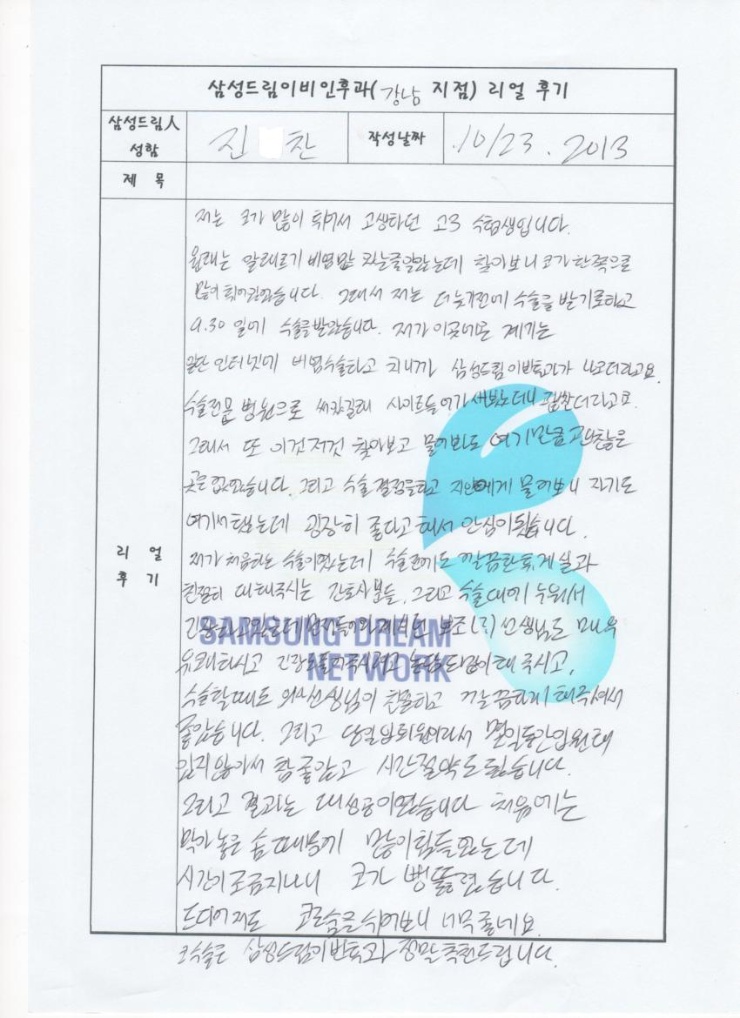 삼성드림이비인후과(강남 지점) 리얼 후기
삼성드림人
성함
진 찬
작성날짜
10/23. 2013
제 목
리 얼
후 기
저는 코가 많이 휘어서 고생하던 고3 수험생입니다.
원래는 알레르기 비염만 있는줄알았는데 찾아보니 코가 한쪽으로
많이 휘어있었습니다. 그래서 저는 더늦기전에 수술을 받기로하고
9.30 일에 수술을받았습니다. 제가 이곳에온 계기는
일단 인터넷에 비염수술하고 치니까 삼성드림이비인후과가 나오더라고요.
수술전문 병원으로 사이트들어가서봤는데 괜찮더라고요
그래서 또 이것저것 찾아보고 물어봐도 여기만큼 괜찮은
곳은없었습니다. 그리고 수술결정을하고 지인에게 물어보니 자기도
여기서했는데 굉장히 좋다고 해서 안심이됬습니다.
제가 처음하는 수술이었는데 수술전에도 깔끔한휴게실과
친절히 대해주시는 간호사분들, 그리고 수술대에 누워서
보조(?) 선생님도 매우
유쾌하시고 긴장도풀어주시려고 농담도많이해 주시고,
수술할때도 의사선생님이 친절하고 깔끔하게 해주셔서
좋았습니다. 그리고 당일입퇴원이라서 몇일동안입원해
있지않아서 참좋았고 시간절약도됬습니다.
그리고 결과는 대성공이었습니다 처음에는
막아놓은 솜때문에 많이힘들었는데
시간이조금지나니 코가 뻥뚫렸습니다.
드디어저도 코로숨을쉬어보니 너무좋네요.
코수술은 삼성드림이비인후과 정말추천드립니다.
SAMSUNG DREAM
NETWORK